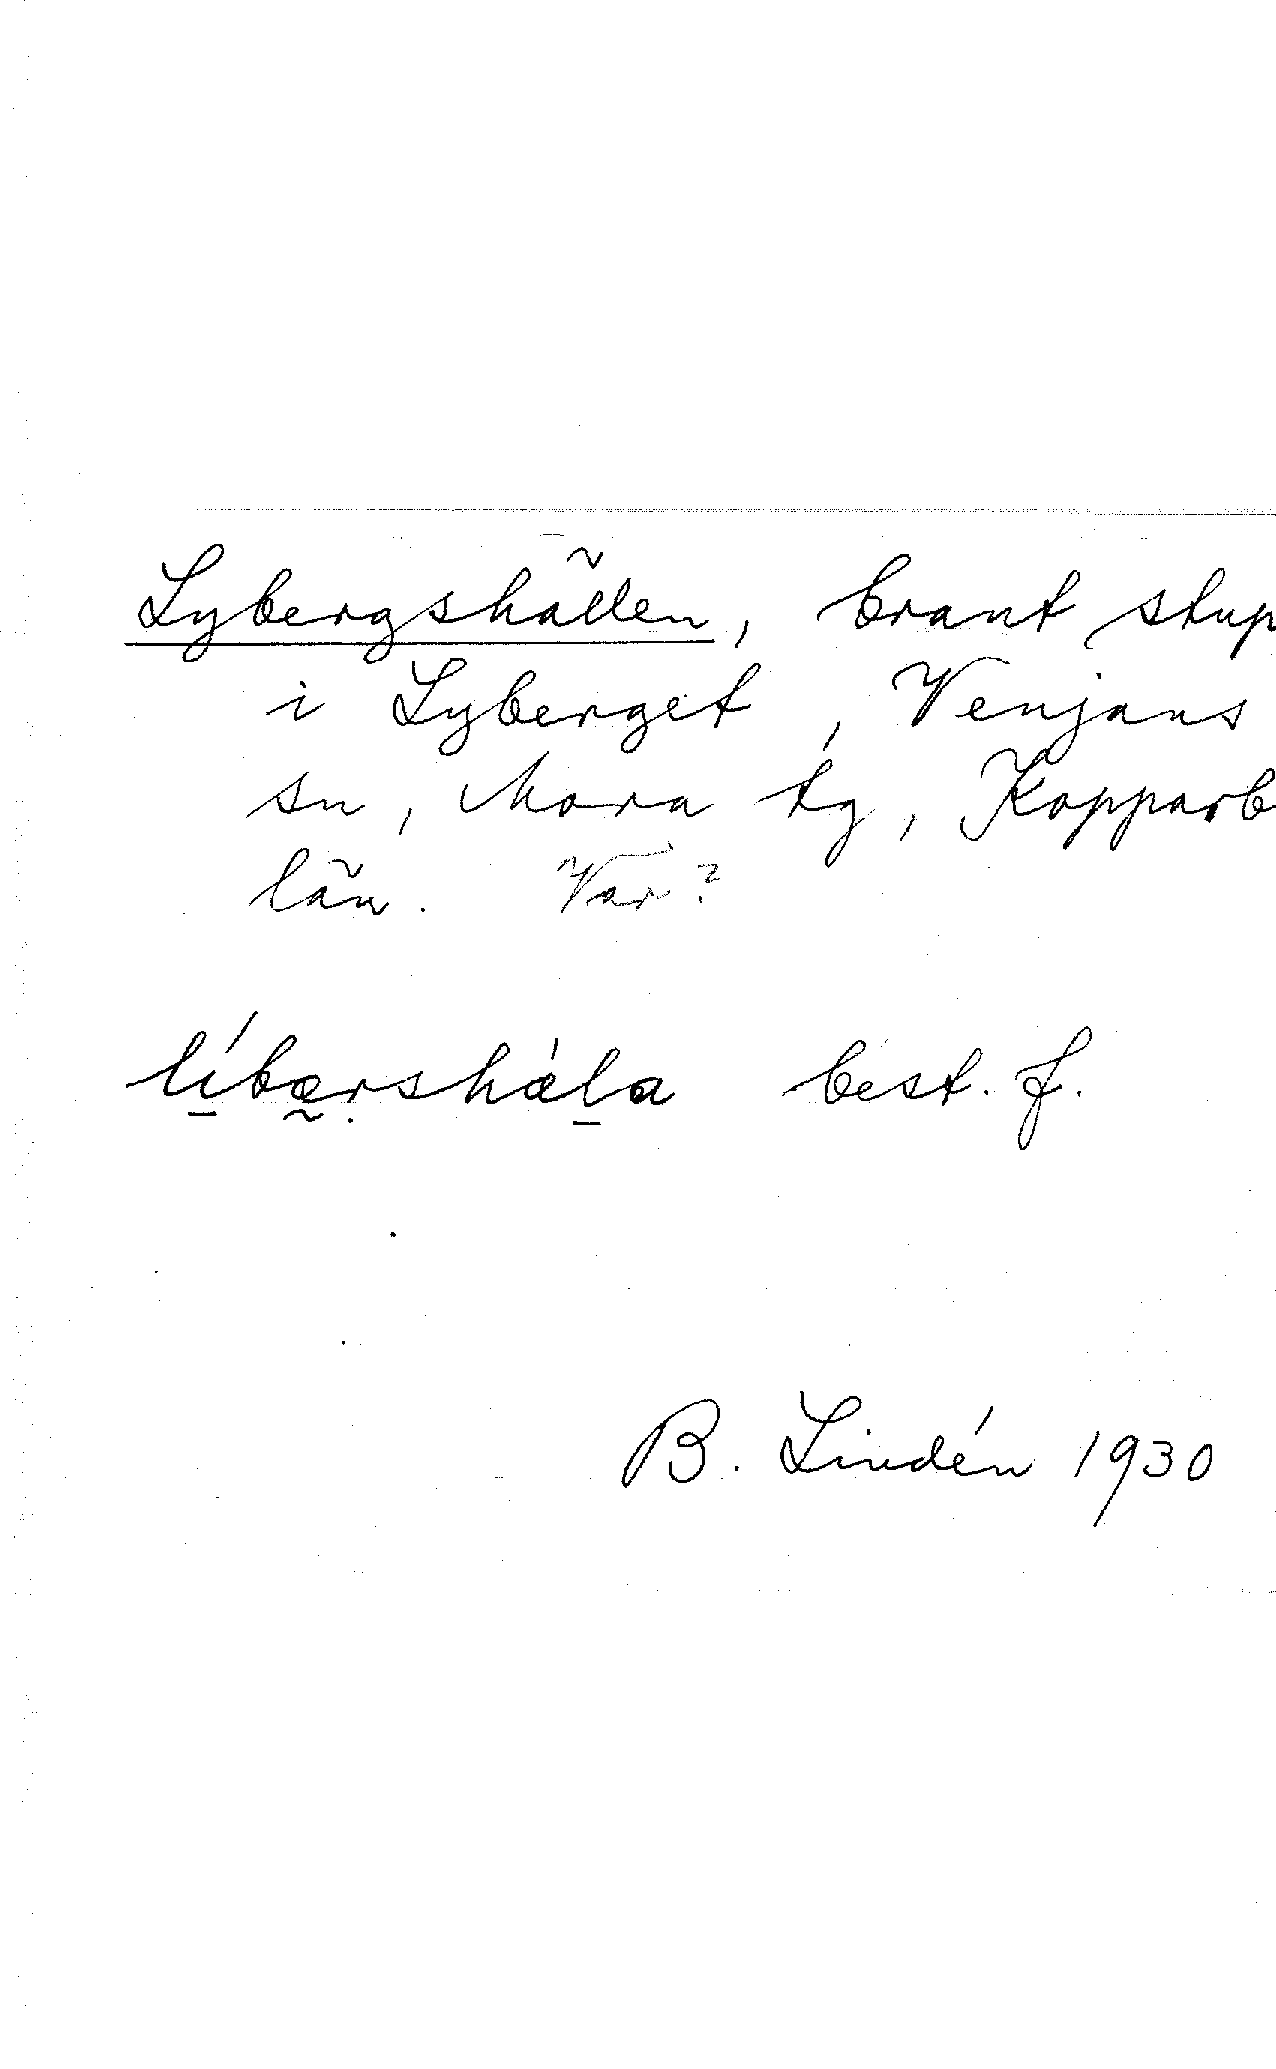 Lybergshällen, brant stup
i Lyberget, Venjans
sn, Mora tg, Kopparb
län. Var?
lí̱bæ̰rṣháḻa best. f.
B. Lindén 1930